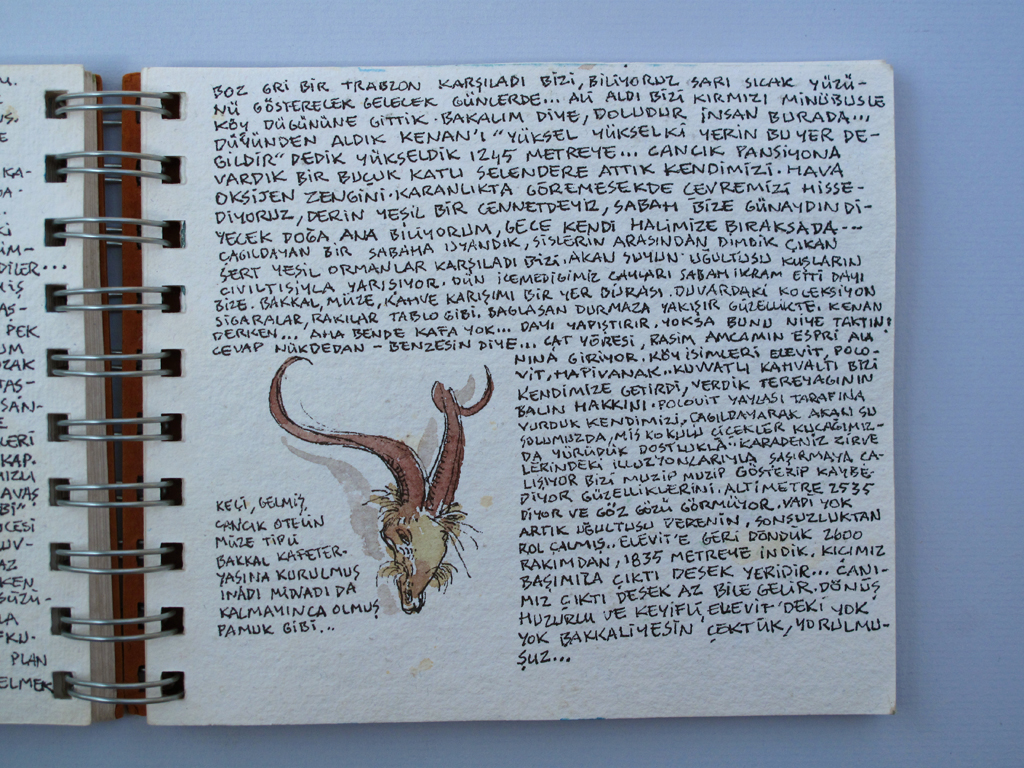 M.
Ş.
E
KA-
DA.
.
Kİ
İM-
DİLER...
MİŞ
AŞ-
PEK
UM
UZAK
TAŞ-
SAN-
E
LERİ
KAP.
MIZLA
AVAŞ
BI"
CESİ
UV-
AZ
KEN
SÜZÜ-
LA
FKU-
PLAN
ELMEK
BOZ GRİ BİR TRABZON KARŞILADI BİZİ, BİLİYORUZ SARI SICAK YÜZÜ-
NÜ GÖSTERECEK GELECEK GÜNLERDE... ALİ ALDI BİZİ KIRMIZI MİNÜBÜSLE
KÖY DÜGÜNÜNE GİTTİK. BAKALIM DİYE, DOLUDUR İNSAN BURADA...
DÜĞÜNDEN ALDIK KENAN'I "YÜKSEL YÜKSELKİ YERİN BU YER DE-
GİLDİR" DEDİK YÜKSELDİK 1245 METREYE... CANCIK PANSİYONA
VARDIK BİR BUÇUK KATLI SELENDERE ATTIK KENDİMİZİ. HAVA
OKSİJEN ZENGİNİ. KARANLIKTA GÖREMESEKDE ÇEVREMİZİ HİSSE-
DİYORUZ, DERİN YEŞİL BİR CENNETDEYİZ, SABAH BİZE GÜNAYDIN Dİ-
YECEK DOĞA ANA BİLİYORUM, GECE KENDİ HALİMİZE BIRAKSADA...
ÇAGILDAYAN BİR SABAHA UYANDIK, SİSLERİN ARASINDAN DİMDİK ÇIKAN
SERT YEŞİL ORMANLAR KARŞILADI BİZİ. AKAN SUYUN UĞULTUSU KUŞLARIN
CIVILTISIYLA YARIŞIYOR. DÜN İÇEMEDİGİMİZ ÇAYLARI SABAH İKRAM ETTİ DAYI
BİZE. BAKKAL, MÜZE, KAHVE KARIŞIMI BİR YER BURASI. DUVARDAKİ KOLEKSİYON
SİGARALAR, RAKILAR TABLO GİBİ. BAGLASAN DURMAZA YAKIŞIR GÜZELLİKTE. KENAN
DERKEN... AHA BENDE KAFA YOK... DAYI YAPIŞTIRIR, YOKSA BUNU NİYE TAKTIN!
CEVAP NÜKDEDAN - BENZESİN DİYE... ÇAT YÖRESİ, RASİM AMCAMIN ESPRİ ALA
NINA GİRİYOR. KÖY İSİMLERİ ELEVİT, POLO-
VİT, HAPİVANAK.. KUVVATLI KAHVALTI BİZİ
KENDİMİZE GETİRDİ, VERDİK TEREYAGININ
BALIN HAKKINI. POLOVİT YAYLASI TARAFINA
VURDUK KENDİMİZİ, ÇAGILDAYARAK AKAN SU
SOLUMUZDA, MİS KOKULU ÇİÇEKLER KUCAĞIMIZ-
DA YÜRÜDÜK DOSTLUKLA.. KARADENİZ ZİRVE
LERİNDEKİ İLLUZYONLARIYLA ŞAŞIRMAYA ÇA-
LIŞIYOR BİZİ MUZİP MUZİP GÖSTERİP KAYBE-
DİYOR GÜZELLİKLERİNİ. ALTİMETRE 2535
DİYOR VE GÖZ GÖZÜ GÖRMÜYOR. VADİ YOK
ARTIK UĞULTUSU DERENİN, SONSUZLUKTAN
ROL ÇALMIŞ.. ELEVİT'E GERİ DÖNDÜK 2600
RAKIMDAN, 1835 METREYE İNDİK. KIÇIMIZ
BAŞIMIZA ÇIKTI DESEK YERİDİR... CANI-
MIZ ÇIKTI DESEK AZ BİLE GELİR. DÖNÜŞ
HUZURLU VE KEYİFLİ, ELEVİT'DEKİ YOK
YOK BAKKALİYESİN ÇEKTÜK, YORULMU-
ŞUZ...
KEÇİ, GELMİŞ,
CANCIK OTELİN
MÜZE TİPLİ
BAKKAL KAFETER-
YASINA KURULMUŞ
İNADI MİNADI DA
KALMAMINCA OLMUŞ
PAMUK GİBİ...